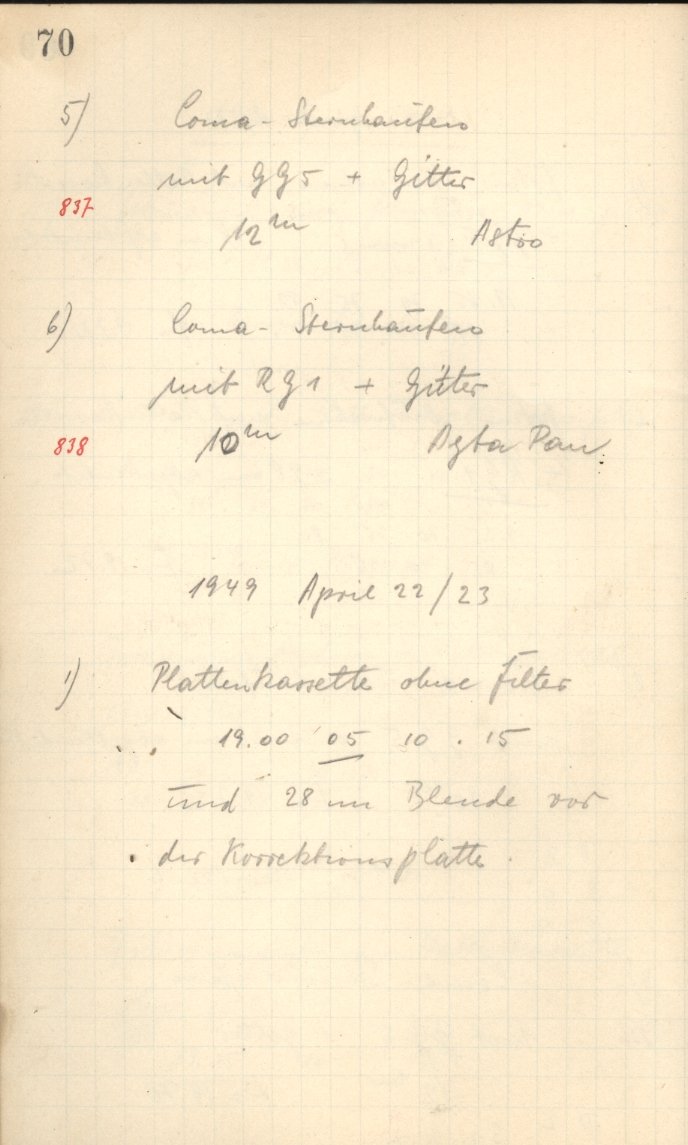 70
5) Coma-Sternhaufen
mit GG5 + Gitter
837
12m Astro
6) Coma-Sternhaufen
mit RG1 + Gitter
838 10m Agfa Pan.
1949 April 22/23
1) Plattenkassette ohne Filter
19.00 05 10 . 15
und 28 cm Blende vor
der Korrektionsplatte.